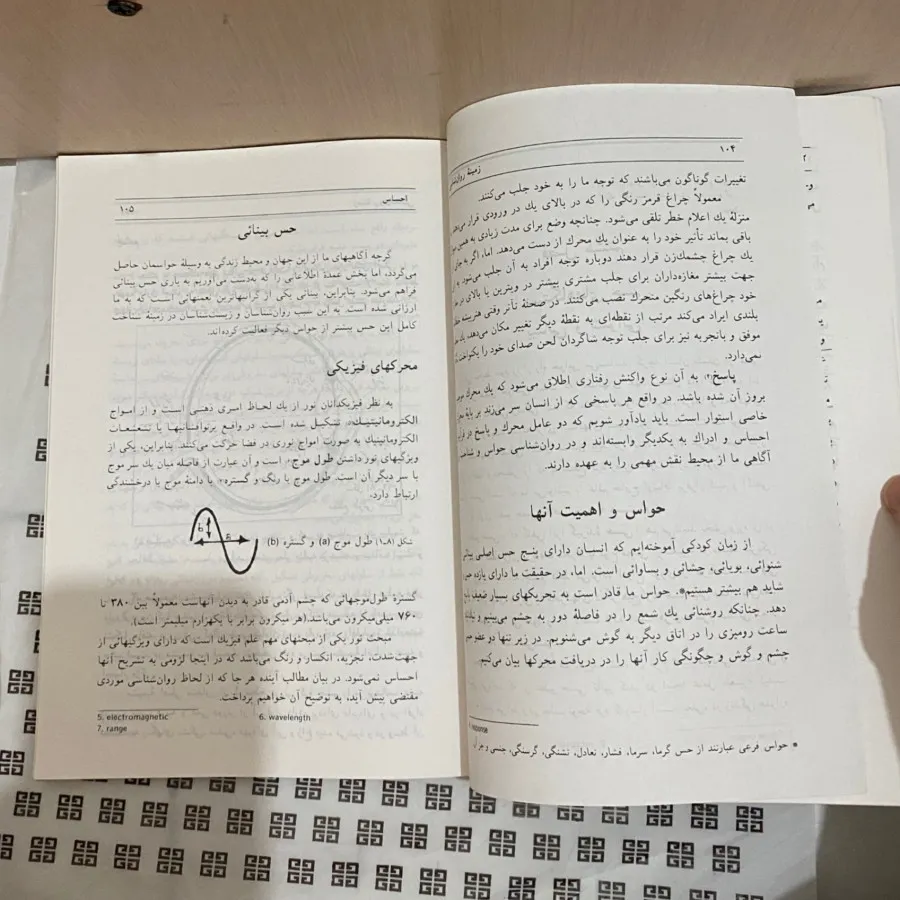 ۱۰۴
زمینهٔ
تغییرات گوناگون می‌باشند که توجه ما را به خود جلب می‌کنند.
معمولاً چراغ قرمز رنگی را که در بالای یك در ورودی قرار
منزلهٔ یك اعلام خطر تلقی می‌شود. چنانچه وضع برای مدت زیادی به همین
باقی بماند تأثیر خود را به عنوان یك محرك از دست می‌دهد. اما، اگر به جای
یك چراغ چشمك‌زن قرار دهند دوباره توجه افراد به آن جلب می‌شود.
جهت بیشتر مغازه‌داران برای جلب مشتری بیشتر در ویترین یا بالای در
خود چراغ‌های رنگین متحرك نصب می‌کنند. در صحنهٔ تأتر وقتی هنرپیشه
بلندی ایراد می‌کند مرتب از نقطه‌ای به نقطهٔ دیگر تغییر مکان می‌دهد. یك
موفق و باتجربه نیز برای جلب توجه شاگردان لحن صدای خود را یکنواخت
نمی‌دارد.
پاسخ۴، به آن نوع واکنش رفتاری اطلاق می‌شود که یك محرك
بروز آن شده باشد. در واقع هر پاسخی که از انسان سر می‌زند بر پایهٔ
خاصی استوار است. باید یادآور شویم که دو عامل محرك و پاسخ در
احساس و ادراك به یکدیگر وابسته‌اند و در روان‌شناسی حواس و
آگاهی ما از محیط نقش مهمی را به عهده دارند.
حواس و اهمیت آنها
از زمان کودکی آموخته‌ایم که انسان دارای پنج حس اصلی
شنوائی، بویائی، چشائی و بساوائی است. اما، در حقیقت ما دارای یازده
شاید هم بیشتر هستیم*. حواس ما قادر است به تحریکهای بسیار ضعیف
دهد. چنانکه روشنائی یك شمع را در فاصلهٔ دور به چشم می‌بینیم و
ساعت رومیزی را در اتاق دیگر به گوش می‌شنویم. در زیر تنها دو عضو
چشم و گوش و چگونگی کار آنها را در دریافت محرکها بیان می‌کنیم
* حواس فرعی عبارتند از حس گرما، سرما، فشار، تعادل، تشنگی، گرسنگی، جنسی و
احساس
۱۰۵
حس بینائی
گرچه آگاهیهای ما از این جهان و محیط زندگی به وسیلهٔ حواسمان حاصل
می‌گردد، اما بخش عمدهٔ اطلاعاتی را که به‌دست می‌آوریم به یاری حس بینائی
فراهم می‌شود. بنابراین، بینائی یکی از گرانبهاترین نعمتهائی است که به ما
ارزانی شده است. به این سبب روان‌شناسان و زیست‌شناسان در زمینهٔ شناخت
کامل این حس بیشتر از حواس دیگر فعالیت کرده‌اند.
محرکهای فیزیکی
به نظر فیزیکدانان نور از یك لحاظ امری ذهنی است و از امواج
الکترومانیتیك۵ تشکیل شده است. در واقع پرتوافشانیها یا تشعشعات
الکترومانیتیك به صورت امواج نوری در فضا حرکت می‌کنند. بنابراین، یکی از
ویژگیهای نور داشتن طول موج۶ است و آن عبارت از فاصله میان یك سر موج
با سر دیگر آن است. طول موج با رنگ و گستره۷ یا دامنهٔ موج با درخشندگی
ارتباط دارد.
b
a
شکل (۸ـ۱) طول موج (a) و گستره (b)
گسترهٔ طول‌موجهائی که چشم آدمی قادر به دیدن آنهاست معمولاً بین ۳۸۰ تا
۷۶۰ میلی‌میکرون می‌باشد. (هر میکرون برابر با یکهزارم میلیمتر است).
مبحث نور یکی از مبحثهای مهم علم فیزیك است که دارای ویژگیهائی از
جهت‌شدت، تجزیه، انکسار و رنگ می‌باشد که در اینجا لزومی به تشریح آنها
احساس نمی‌شود. در بیان مطالب آینده هر جا که از لحاظ روان‌شناسی موردی
مقتضی پیش آید، به توضیح آن خواهیم پرداخت.
5. electromagnetic
6. wavelength
7. range